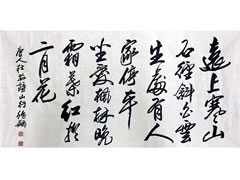 遠上寒山
石徑斜白雲
生處有人
家停車
坐愛楓林晚
霜葉紅於
二月花
唐人杜牧詩山行